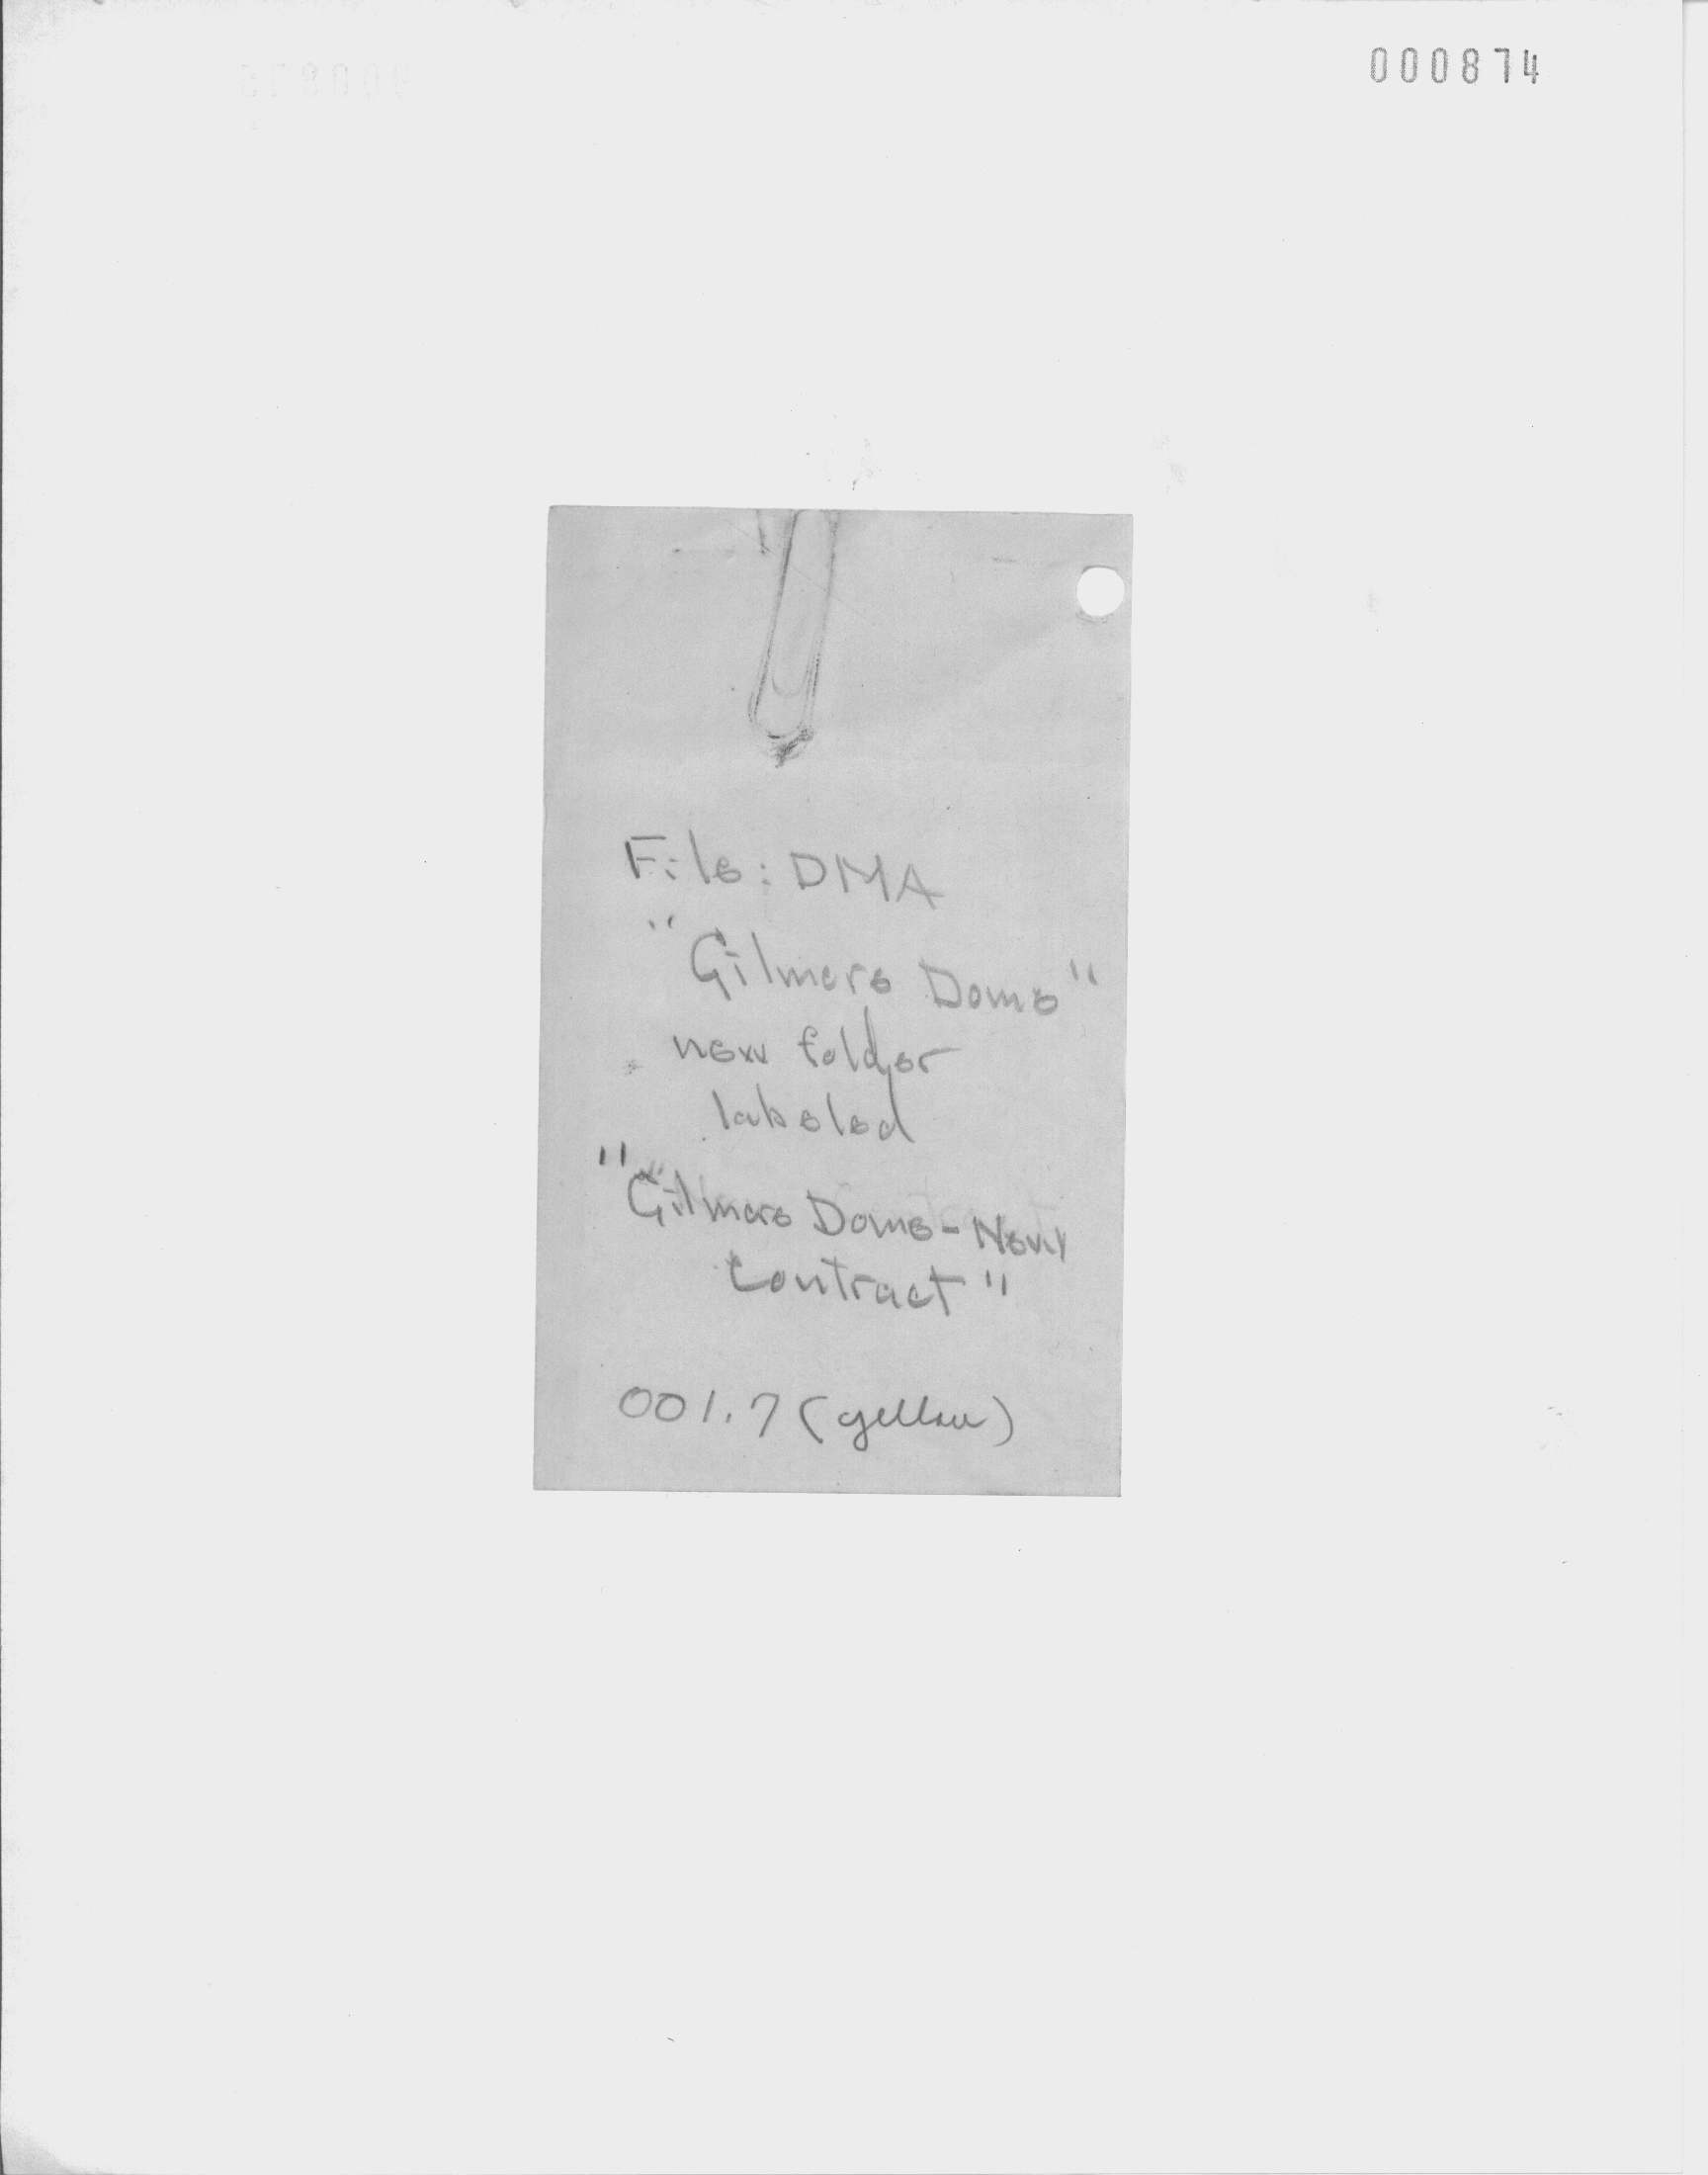 000874
File: DMA
"Gilmere Dome"
new folder
labeled
"Gilmere Dome - New
Contract"
001.7 (yellow)